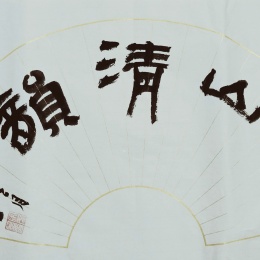 山清韻